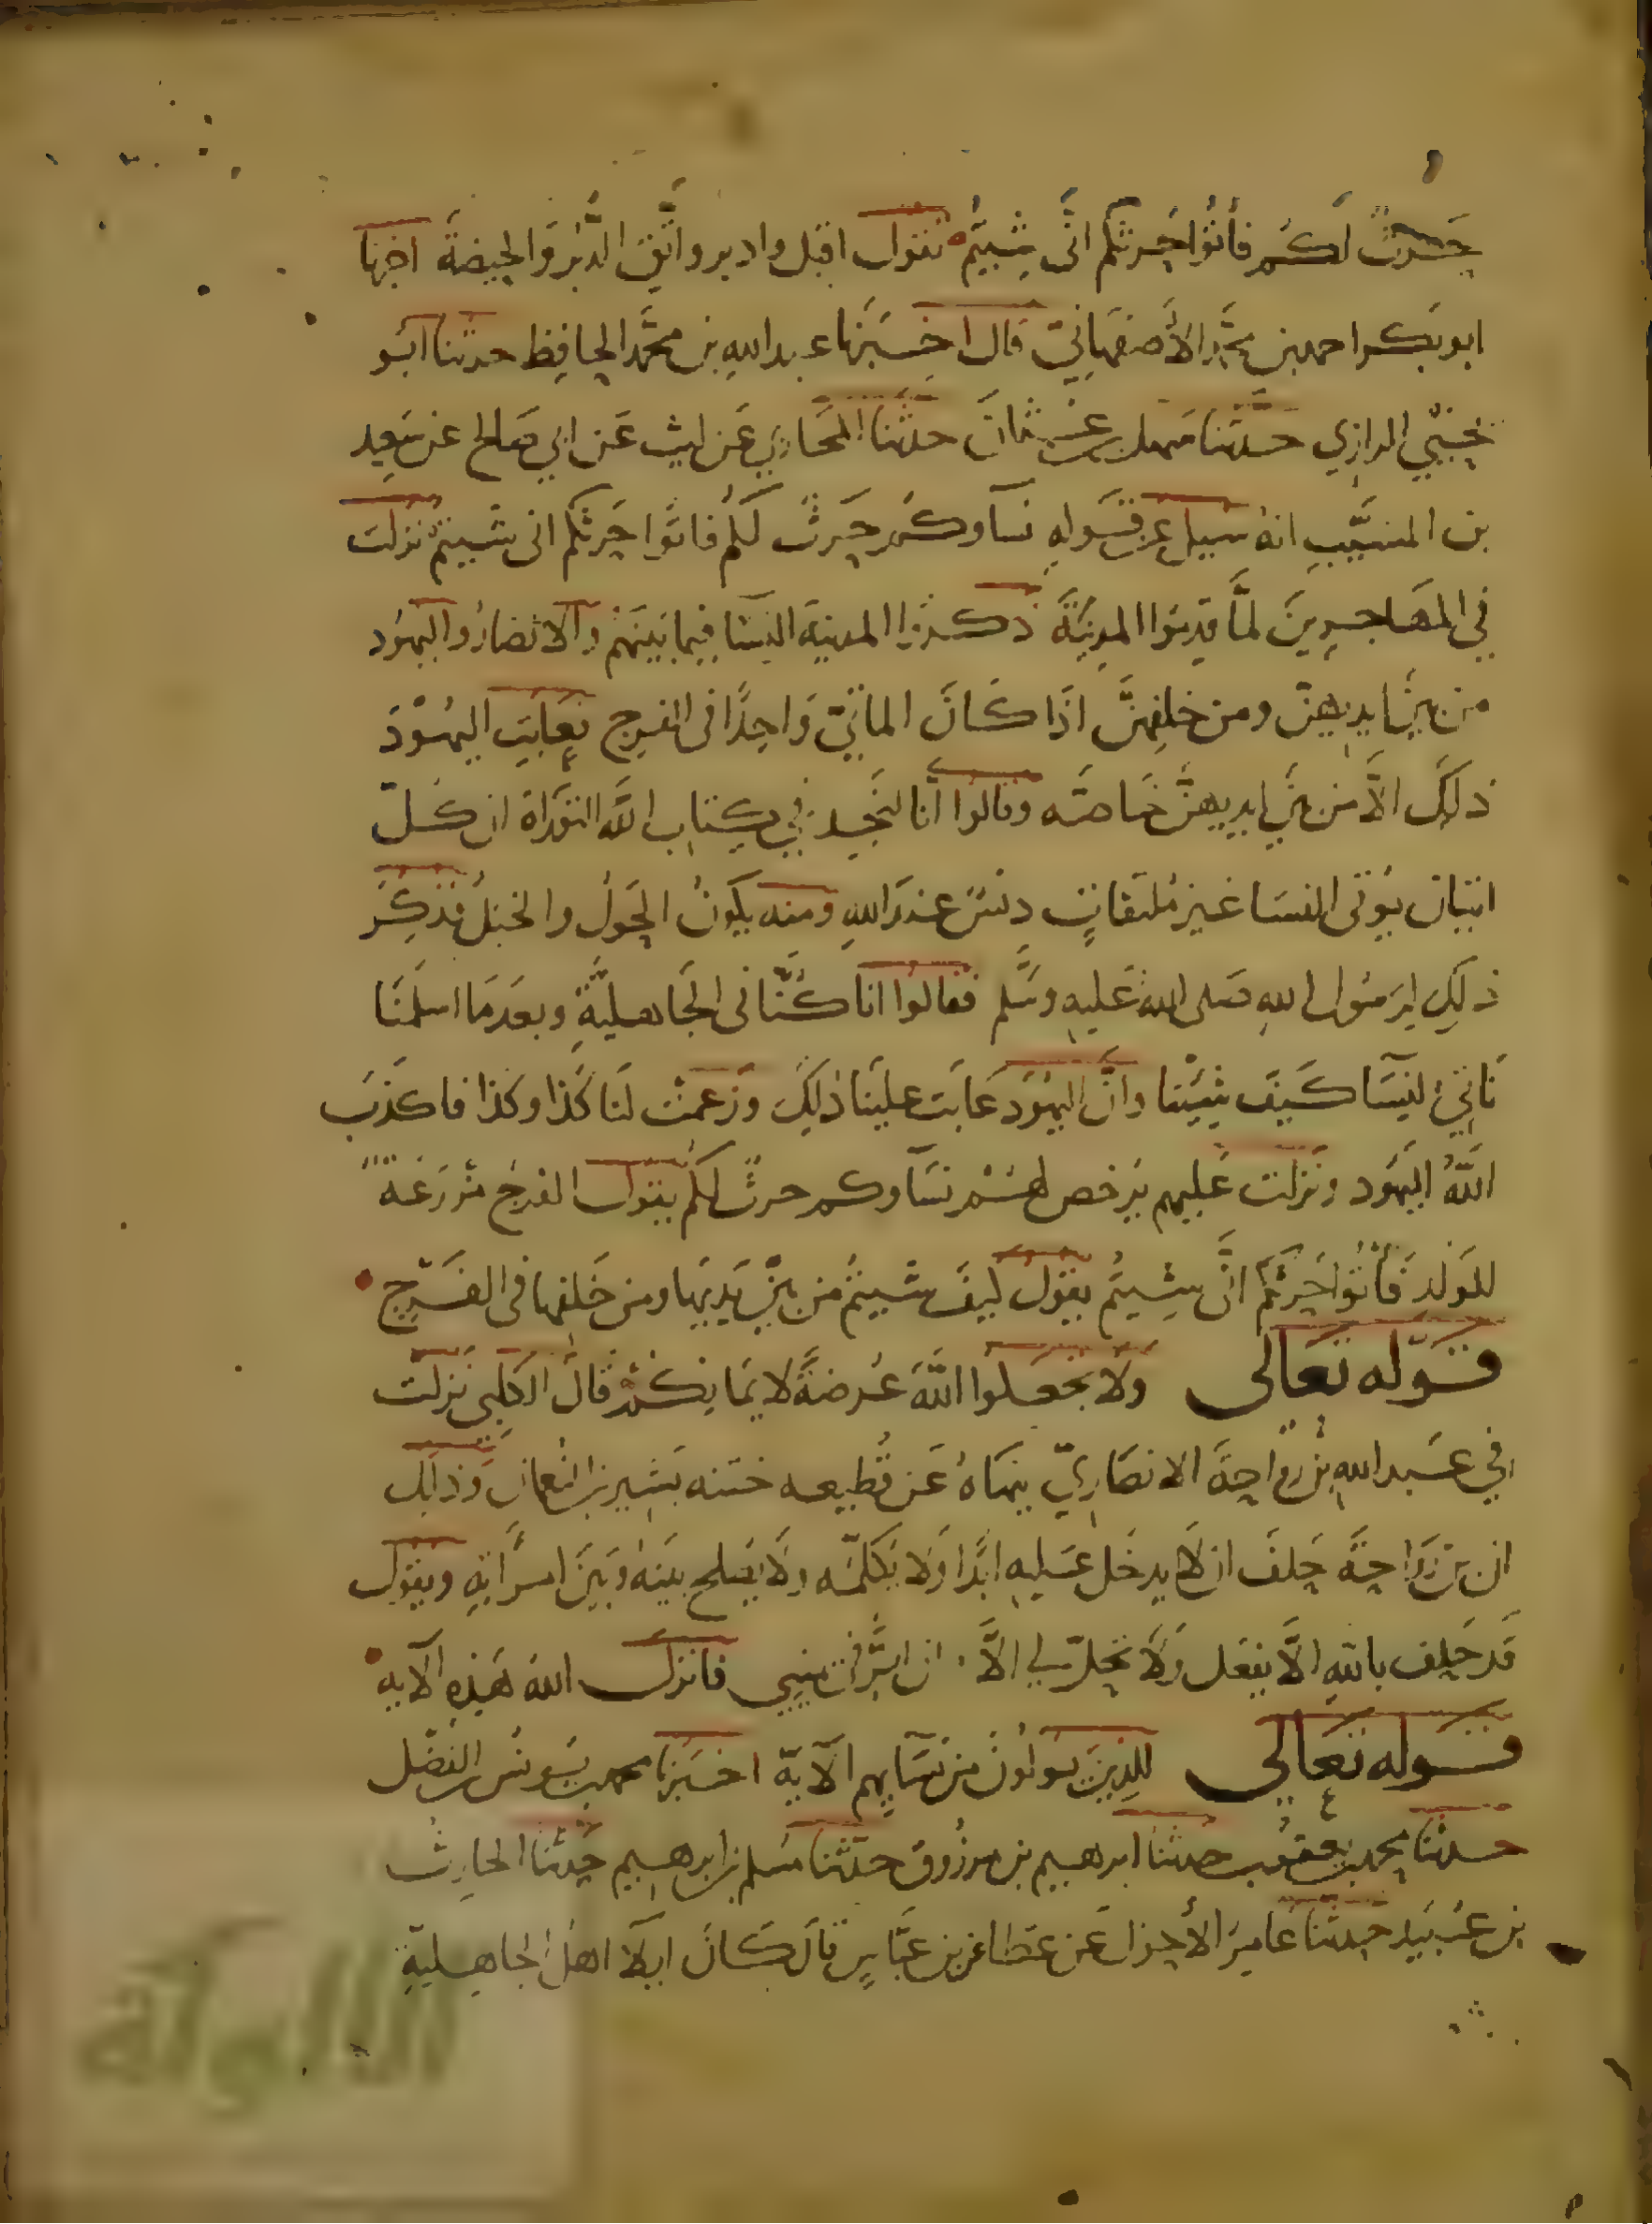 حرث لكم فأتوا حرثكم انى شيتم نقول اقبل وادبر واتق الدبر والحيضة اخبرنا
ابو بكر احمد بن محمد الأصفهاني قال اخبرنا عبد الله بن محمد الحافظ حدثنا ابو
يحيى الرازي حدثنا سهل بن عثمان حدثنا المحاربي عن ليث عن ابي صالح عن سعيد
بن المسيب انه سيل عن قوله نساوكم حرث لكم فاتوا حرثكم انى شيتم نزلت
في المهاجرين لما قدموا المدينة ذكروا المدينة النسا فيما بينهم والانصار واليهود
من بين ايديهن ومن خلفهن اذا كان الماتي واحدا فى الفرج فعابت اليهود
ذلك الا من بين ايديهن خاصه وقالوا انا لنجد في كتاب الله التوراة ان كل
اتيان يوتى النسا غير مستلقيات دنس عند الله ومنه يكون الحول والخبل فذكر
ذلك لرسول الله صلى الله عليه وسلم فقالوا انا كنا فى الجاهلية وبعد ما اسلمنا
ناتي النسا كيف شينا وان اليهود عابت علينا ذلك وزعمت لنا كذا وكذا فاكذب
الله اليهود ونزلت عليهم يرخص لهم نساوكم حرث لكم يقول الفرج مزرعة
للولد فأتوا حرثكم انى شيتم يقول كيف شيتم من بين يديها ومن خلفها فى الفرج
قوله تعالى ولا تجعلوا الله عرضة لايمانكم قال الكلبي نزلت
في عبد الله بن رواحة الانصاري ينهاه عن قطيعه ختنه بشير بن النعمان وذلك
ان بن رواحة حلف ان لا يدخل عليه ابدا ولا يكلمه ولا يصلح بينه وبين امراته ويقول
قد حلفت بالله الا افعل ولا يحل لي الا ان ابر في يميني فانزل الله هذه الآيه
قوله تعالى للذين يولون من نسايهم الآية اخبرنا محمد بن موسى بن الفضل
حدثنا محمد بن يعقوب حدثنا ابرهيم بن مرزوق حدثنا مسلم بن ابرهيم حدثنا الحارث
بن عبيد حدثنا عامر الأحول عن عطا عن بن عباس قال كان ايلا اهل الجاهلية
الألوكة